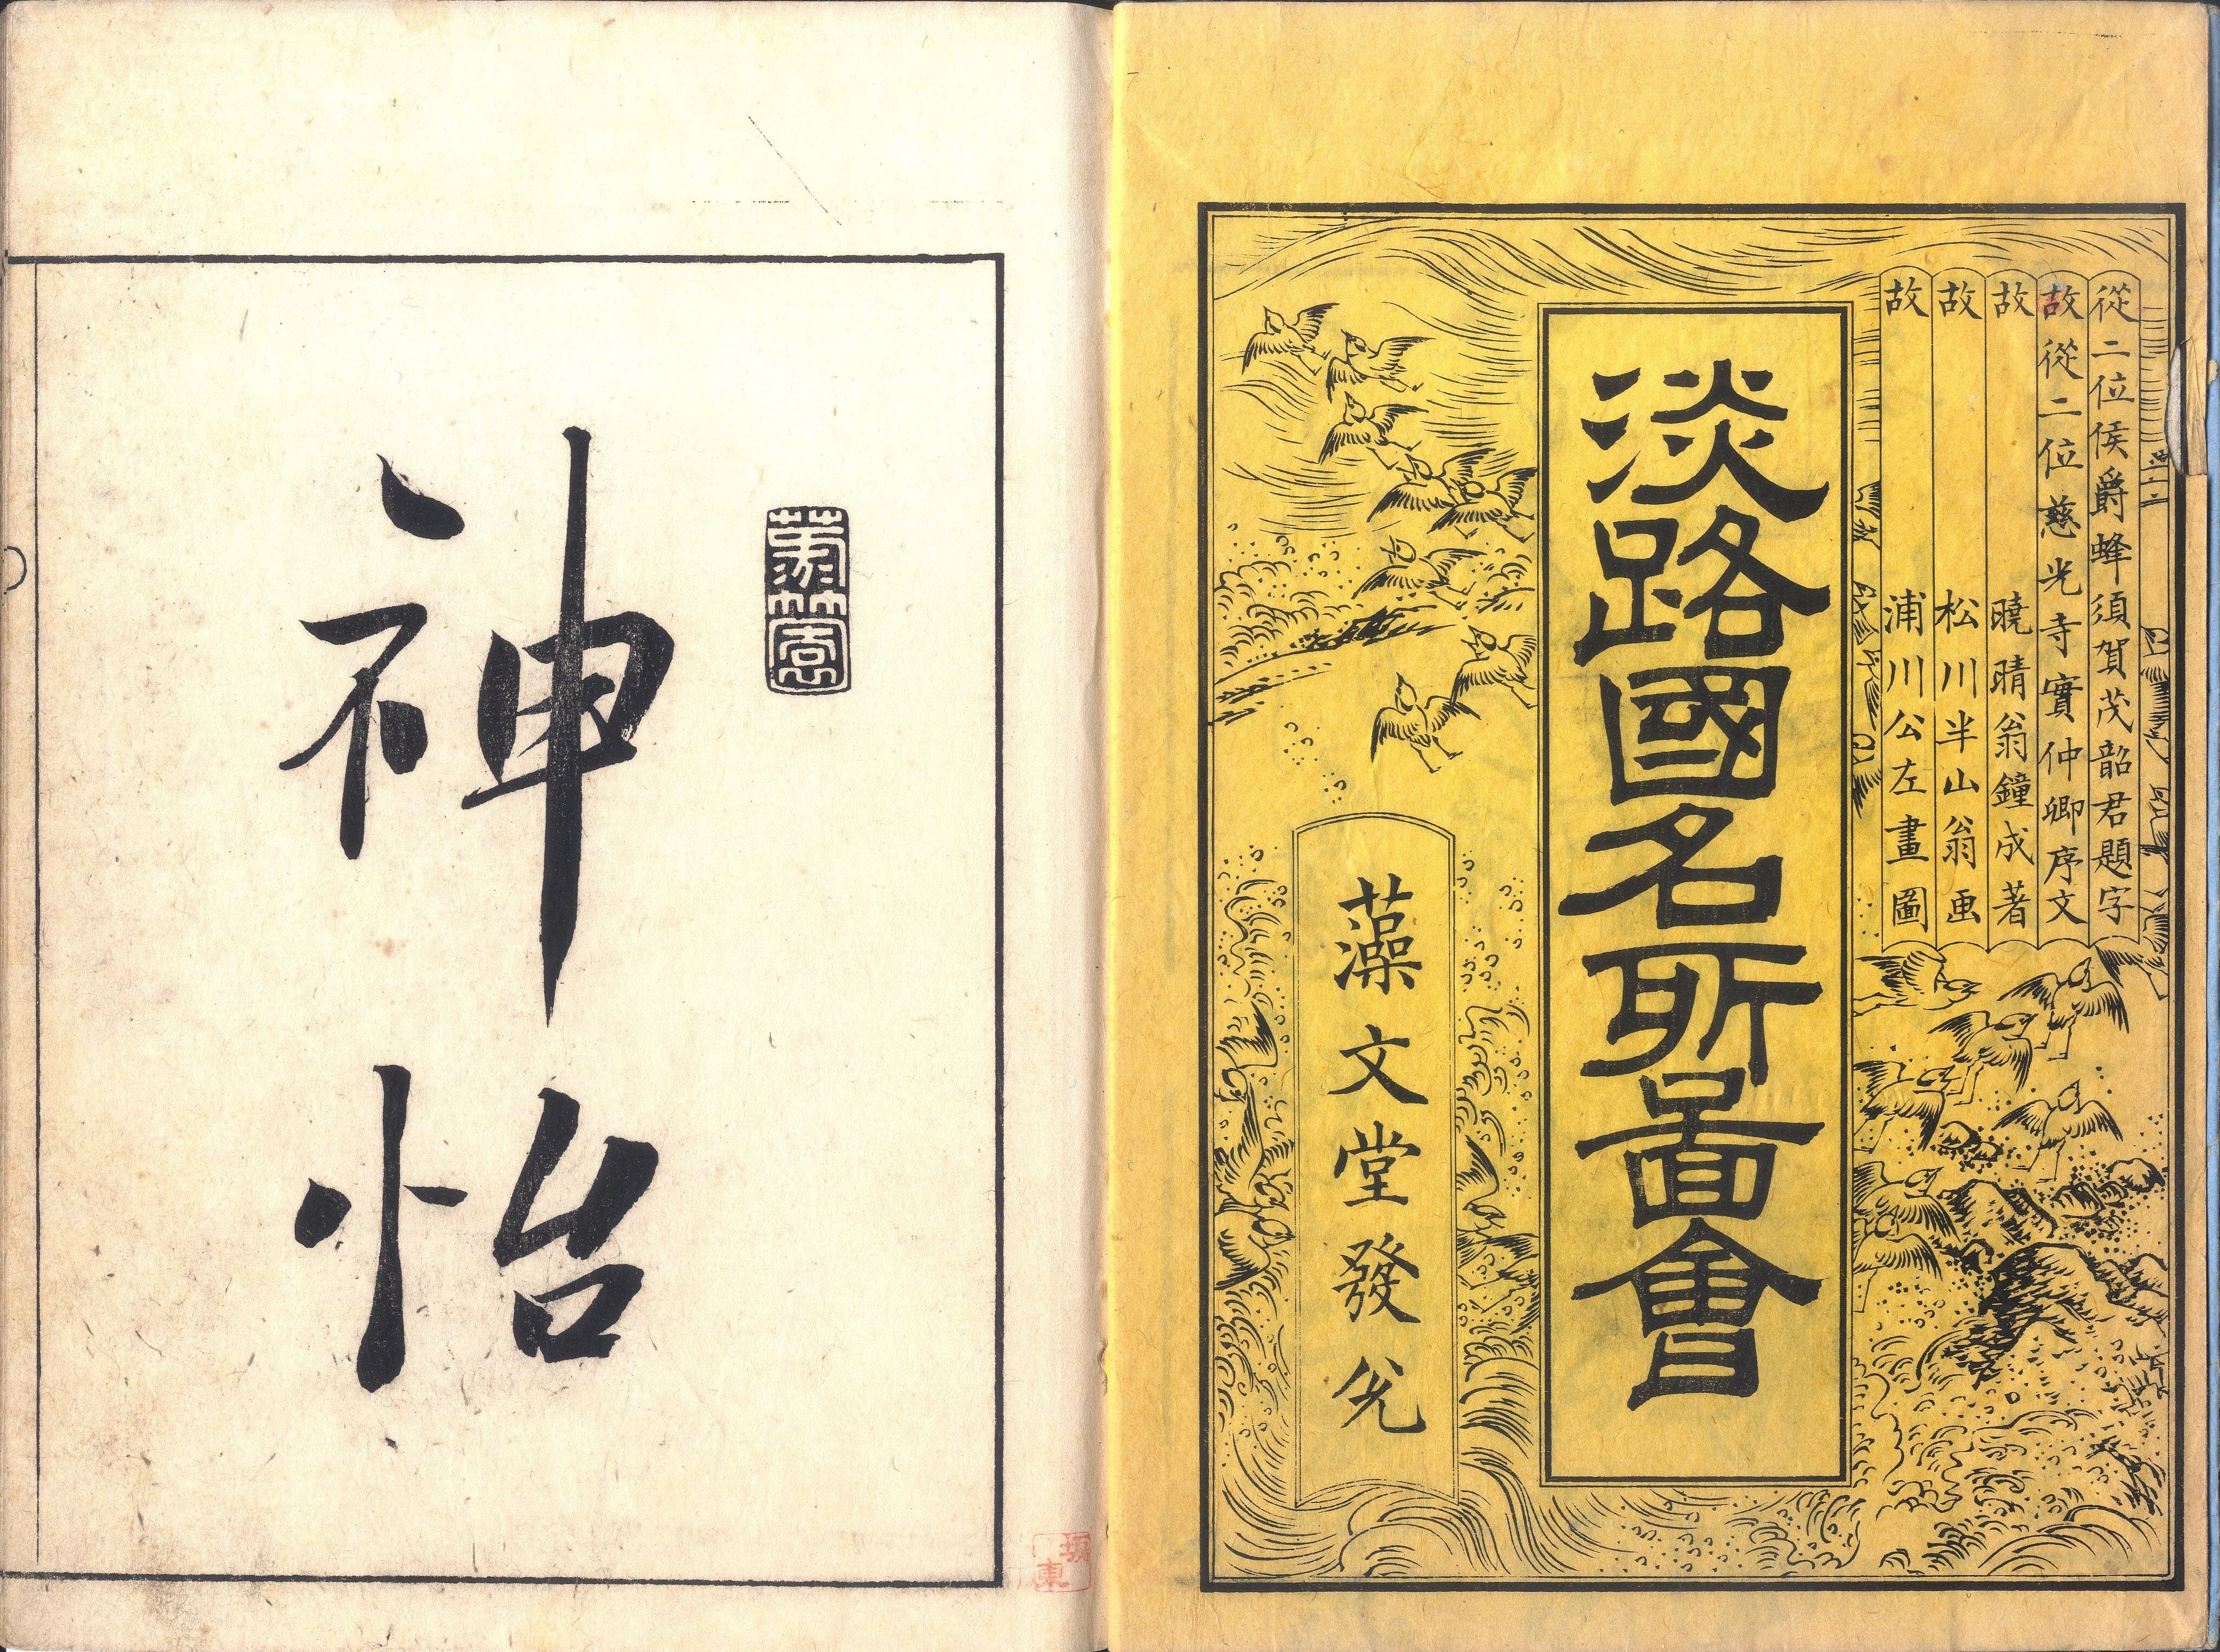 從二位侯爵蜂須賀茂韶君題字
故從二位慈光寺實仲卿序文
故 曉晴翁鐘成著
故 松川半山翁画
故 浦川公左畫圖
淡路國名所啚會
藻文堂發兌
神怡